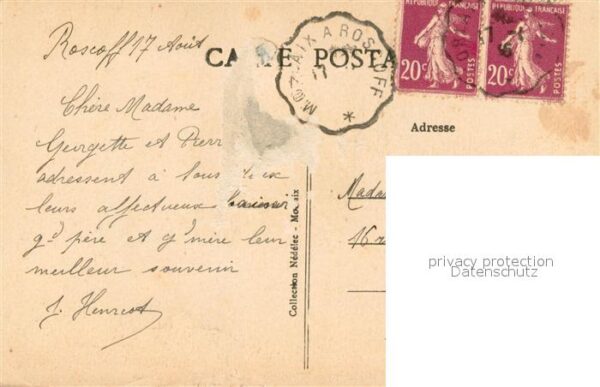 Roscoff 17 Août
CARTE POSTA
MOZLAIX A ROSCOFF
17
*
RÉPUBLIQUE FRANÇAISE
20c POSTES
20c POSTES
Adresse
Chère Madame
Georgette et Pierr
adressent à tous
leurs affectueux
gd père et gd mère leur
meilleur souvenir
J. Henriot
Collection Nédélec - Mo aix
Madam
16
privacy protection
Datenschutz